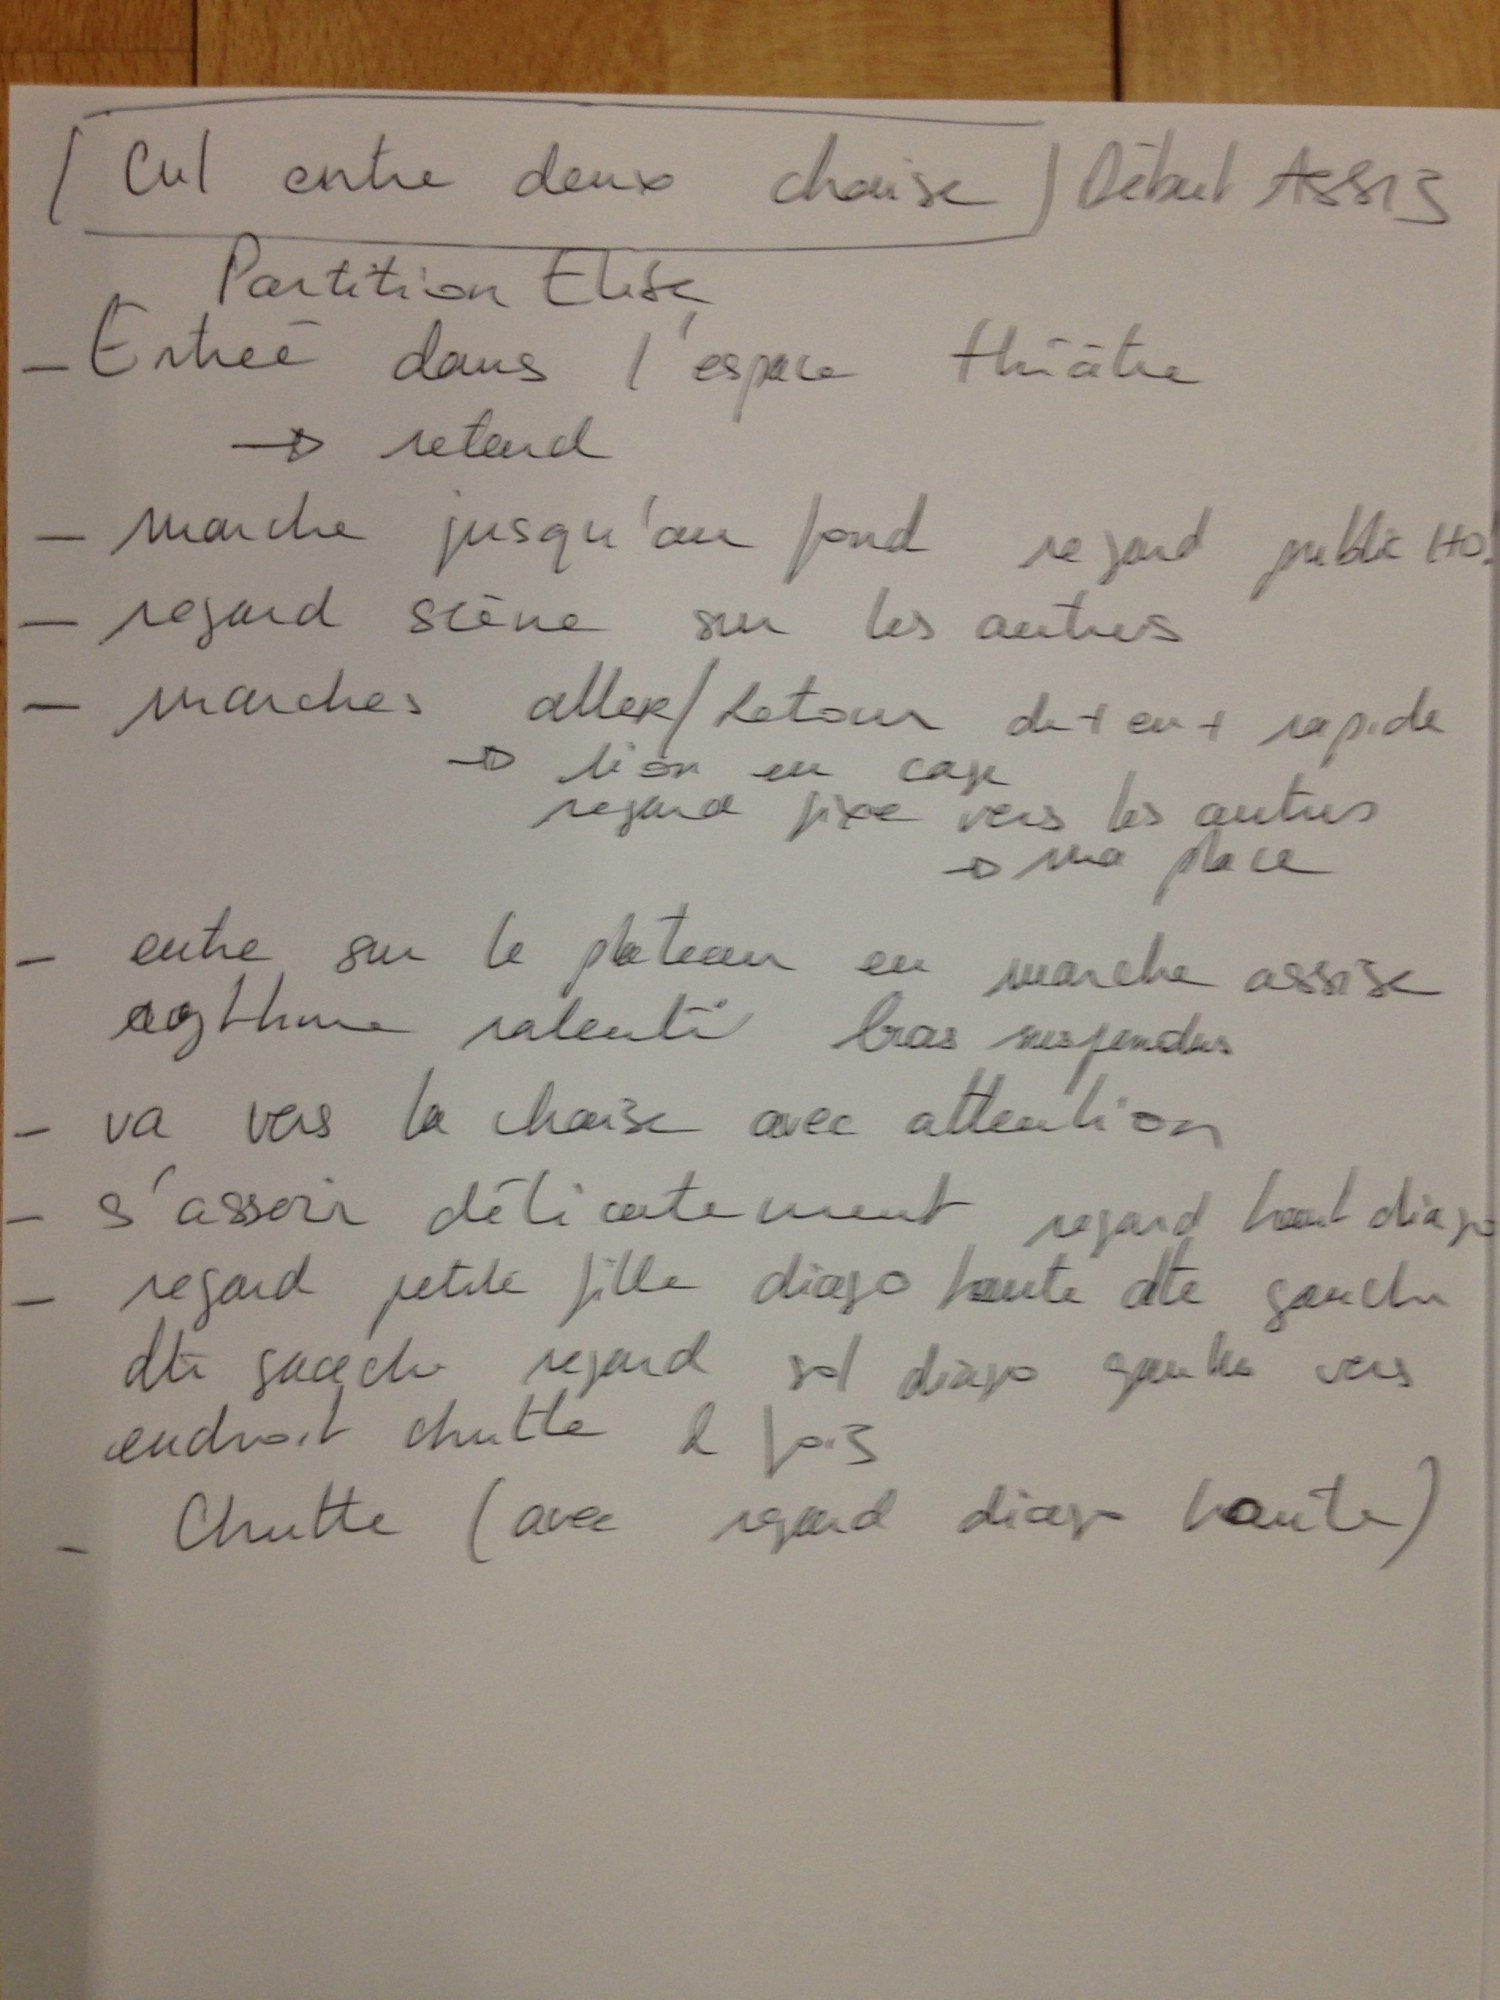 ( Cul entre deux chaise ) Début Assis
Partition Elise
- Entrée dans l'espace théâtre
→ retard
- marche jusqu'au fond regard public
- regard scène sur les autres
- marches aller/retour de + en + rapide
→ lion en cage
regard fixe vers les autres
→ ma place
- entre sur le plateau en marche assise
rythme ralenti bras suspendus
- va vers la chaise avec attention
- s'assoir délicatement regard haut diago
- regard petite fille diago haute dte gauche
dte gauche regard sol diago gauche vers
endroit chutte 2 fois
- Chutte (avec regard diago haute)